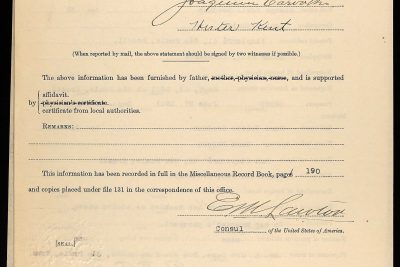 Joaquin
Hester Kent
(When reported by mail, the above statement should be signed by two witnesses if possible.)
The above information has been furnished by father, mother, physician, nurse, and is supported
affidavit.
by { physician's certificate.
certificate from local authorities.
REMARKS:
This information has been recorded in full in the Miscellaneous Record Book, page 190
and copies placed under file 131 in the correspondence of this office.
E M Lawton
Consul of the United States of America.